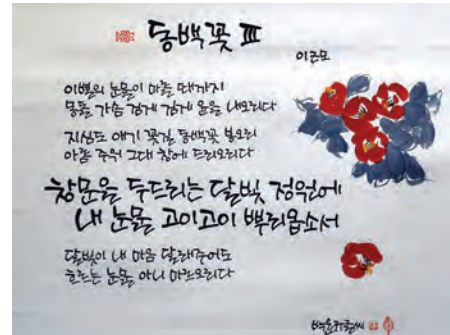 동백꽃 Ⅲ
이근모
이별의 눈물이 마를 때까지
몽틀 가슴 검게 검게 울음 내오리다
지심도 애기 꽃길 동백꽃 봉오리
아픔 주워 그대 창에 드리오리다
창문을 두드리는 달빛 정원에
내 눈물 고이고이 뿌리옵소서
달빛이 내 마음 달래주어도
흐르는 눈물 아니 마르오리다